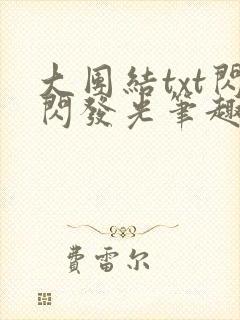 大团結txt閃
閃發光筆趣
費雷尔